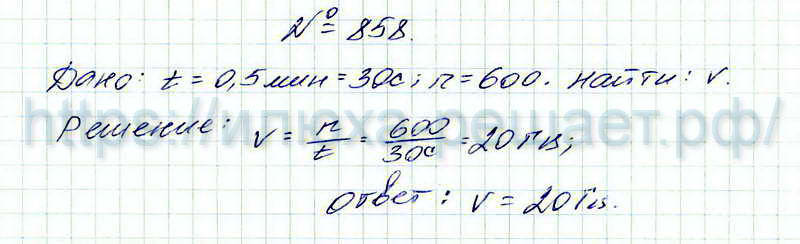 № 858.
Дано: t = 0,5 мин = 30с; n = 600. Найти: ν.
https://илюха-решает.рф/
Решение: ν = n/t = 600/30с = 20 Гц;
Ответ: ν = 20 Гц.